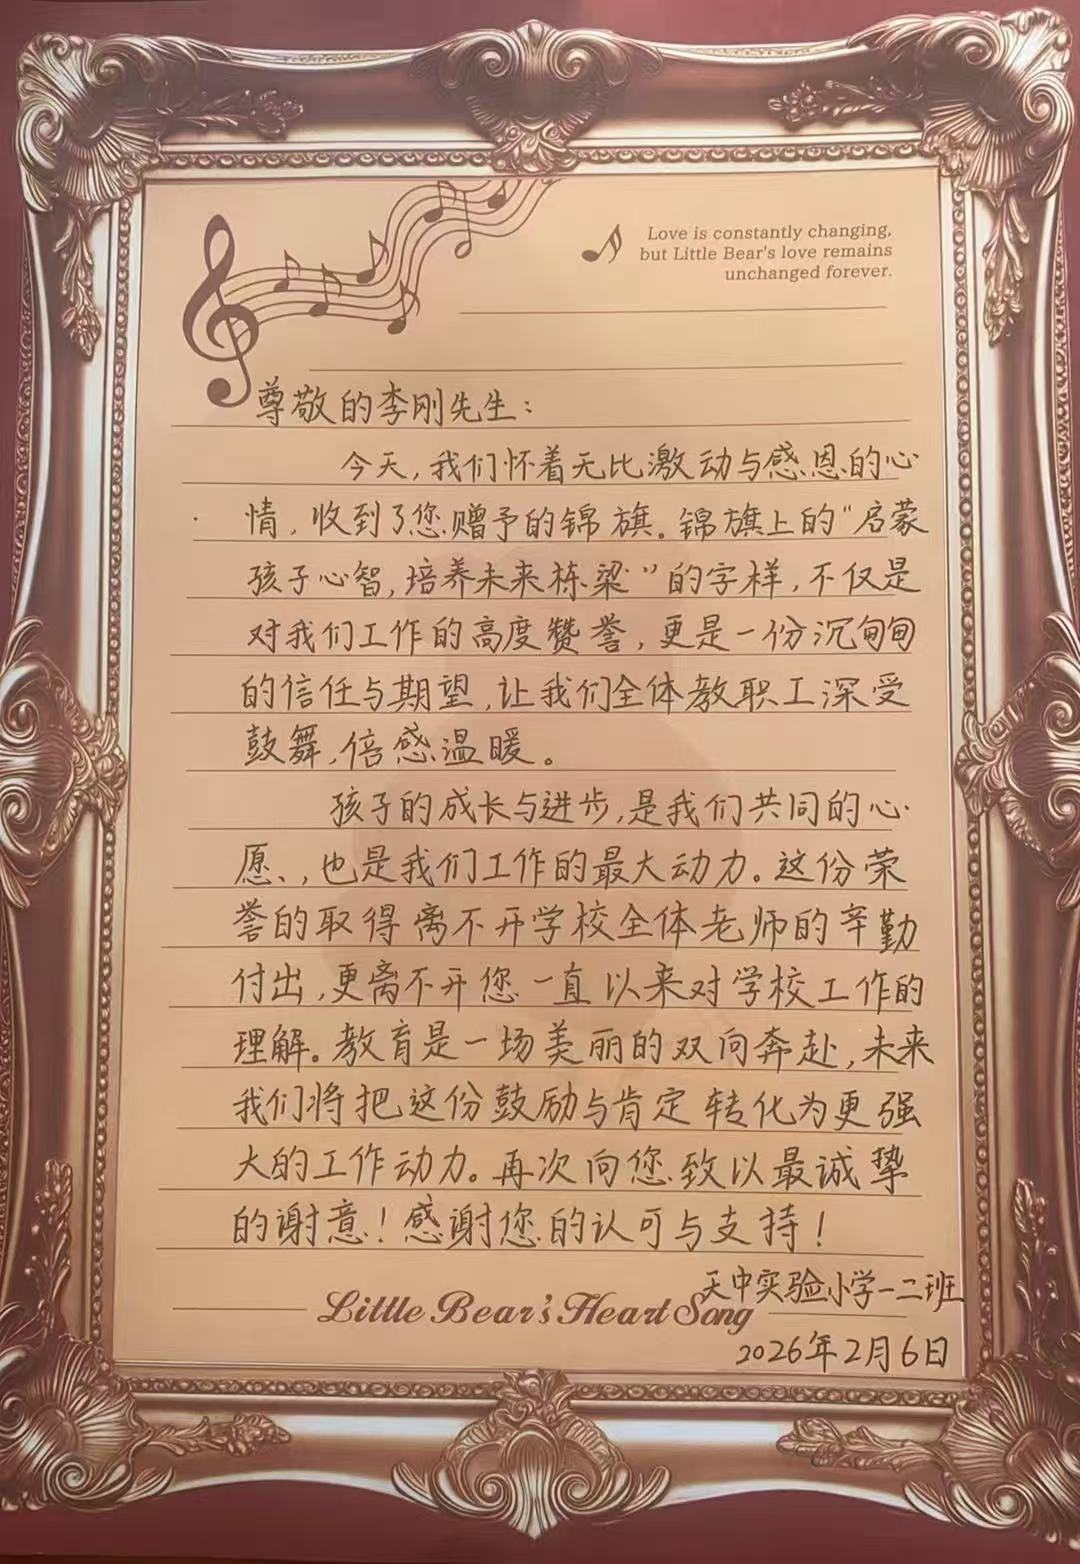 Love is constantly changing,
but Little Bear's love remains
unchanged forever.
尊敬的李刚先生：
今天，我们怀着无比激动与感恩的心
情，收到了您赠予的锦旗。锦旗上的“启蒙
孩子心智，培养未来栋梁”的字样，不仅是
对我们工作的高度赞誉，更是一份沉甸甸
的信任与期望，让我们全体教职工深受
鼓舞，倍感温暖。
孩子的成长与进步，是我们共同的心
愿、，也是我们工作的最大动力。这份荣
誉的取得离不开学校全体老师的辛勤
付出，更离不开您一直以来对学校工作的
理解。教育是一场美丽的双向奔赴，未来
我们将把这份鼓励与肯定转化为更强
大的工作动力。再次向您致以最诚挚
的谢意！感谢您的认可与支持！
天中实验小学一二班
Little Bear's Heart Song
2026年2月6日